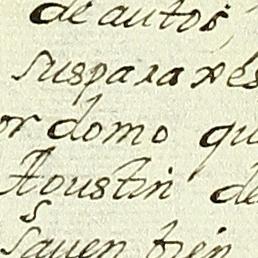 de autos,
suspara res
or domo qu
Agustin de
s
sauen bien